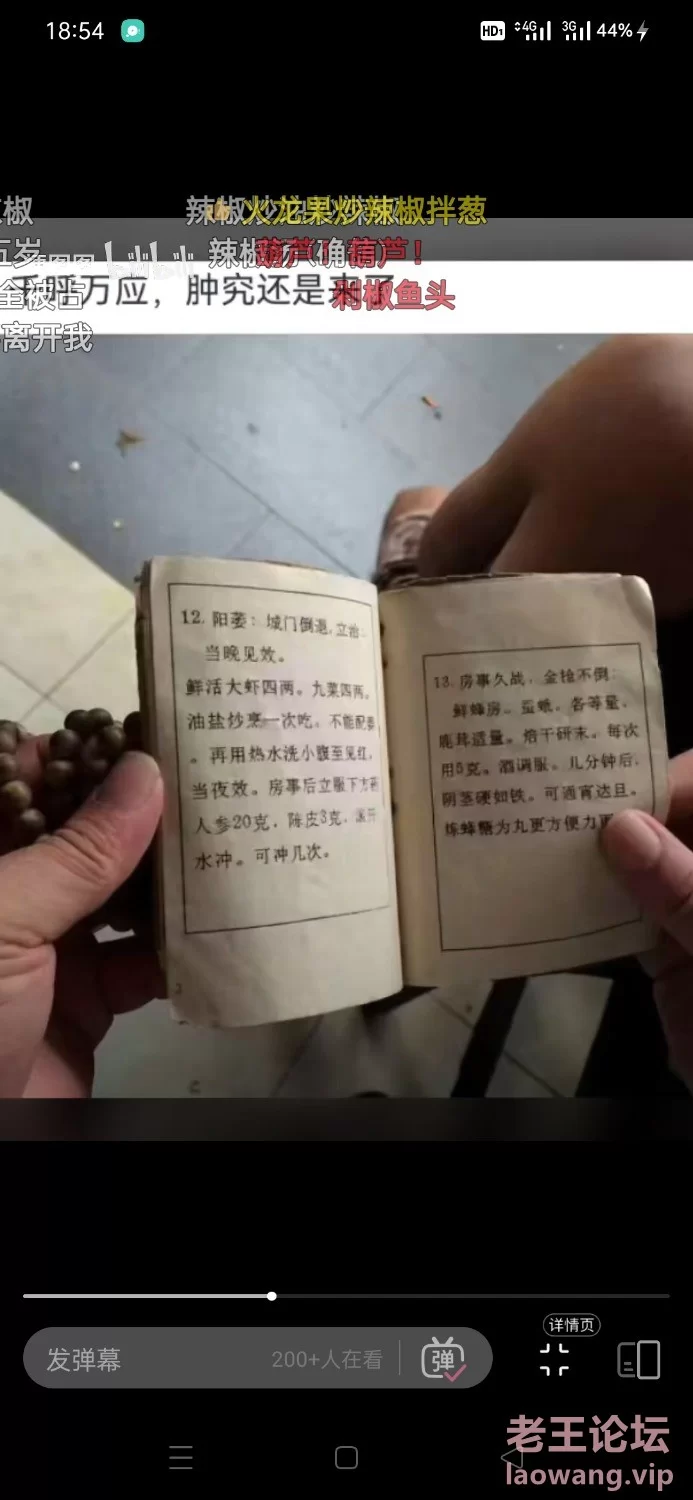 18:54
HD1 4G 3G 44%
椒
火龙果炒辣椒拌葱
五岁
辣椒
葫芦！
全被占
万应，肿究还是来了
剁椒鱼头
离开我
12. 阳萎：城门倒退，立治。
当晚见效。
鲜活大虾四两。九菜四两。
油盐炒烹一次吃。不能配
。再用热水洗小腹至见红，
当夜效。房事后立服下方
人参20克，陈皮3克，滚开
水冲。可冲几次。
13. 房事久战，金枪不倒：
鲜蜂房。蚕蛾。各等量，
鹿茸适量。焙干研末。每次
用5克。酒调服。几分钟后，
阴茎硬如铁。可通宵达旦。
炼蜂糖为丸更方便力
详情页
发弹幕
200+人在看
弹
老王论坛
laowang.vip